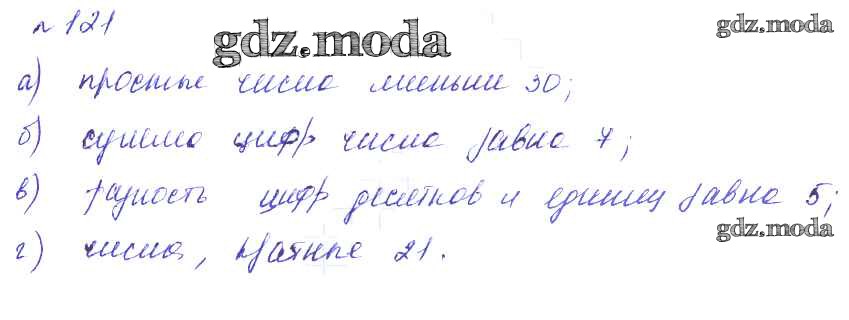 № 121
gdz.moda
gdz.moda
а) простые числа меньши 30;
б) сумма цифр числа равна 7;
в) разность цифр десятков и единиц равна 5;
gdz.moda
г) числа, кратные 21.